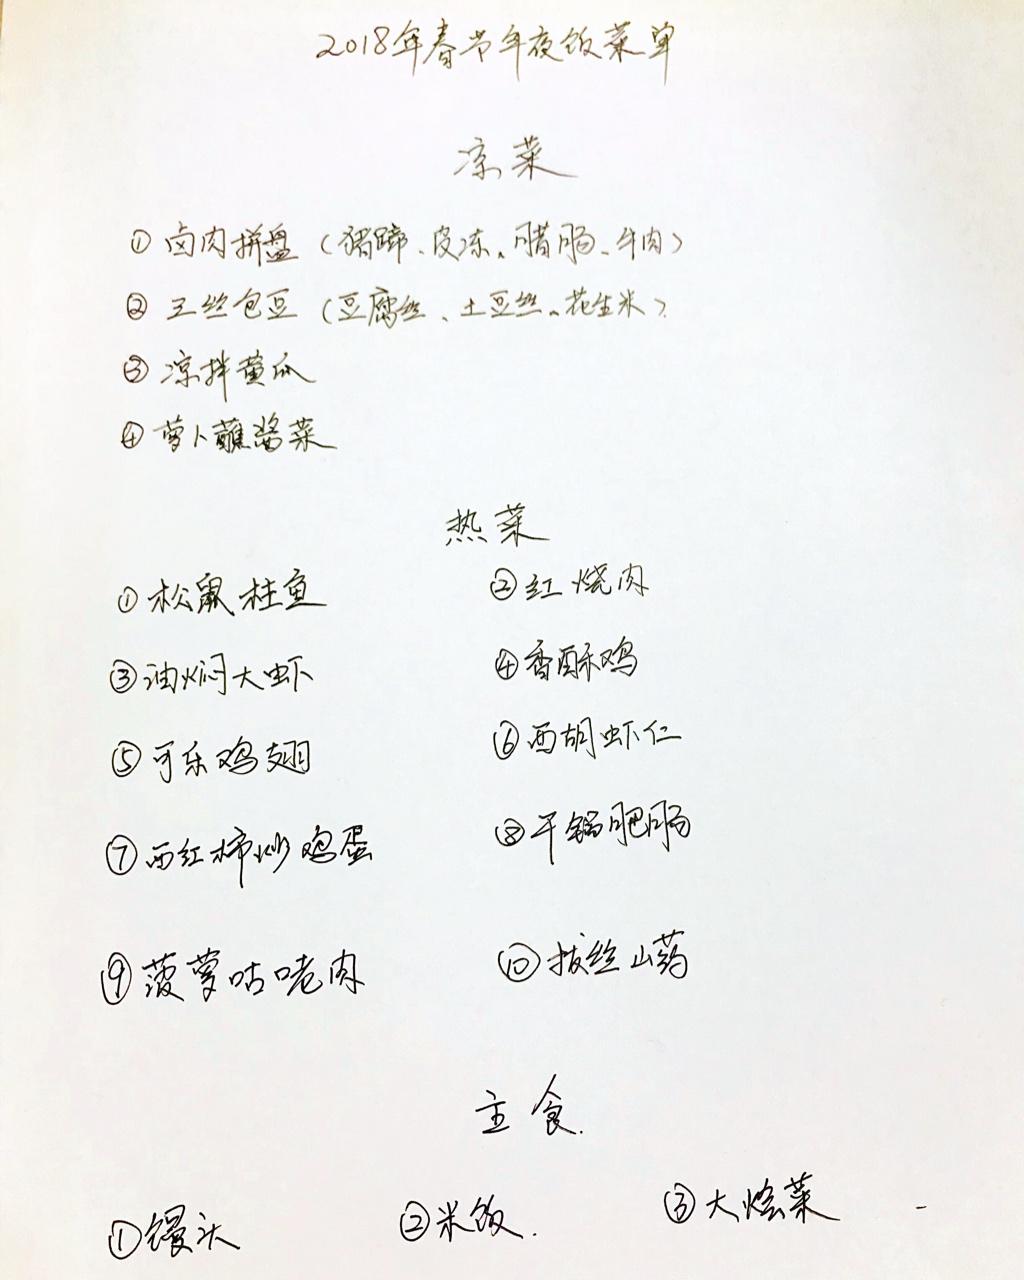 2018年春节年夜饭菜单
凉菜
① 卤肉拼盘（猪蹄、皮冻、腊肠、牛肉）
② 三丝包豆（豆腐丝、土豆丝、花生米）
③ 凉拌黄瓜
④ 萝卜蘸酱菜
热菜
① 松鼠桂鱼 ② 红烧肉
③ 油焖大虾 ④ 香酥鸡
⑤ 可乐鸡翅 ⑥ 西胡虾仁
⑦ 西红柿炒鸡蛋 ⑧ 干锅肥肠
⑨ 菠萝咕咾肉 ⑩ 拔丝山药
主食.
① 馒头 ② 米饭. ③ 大烩菜